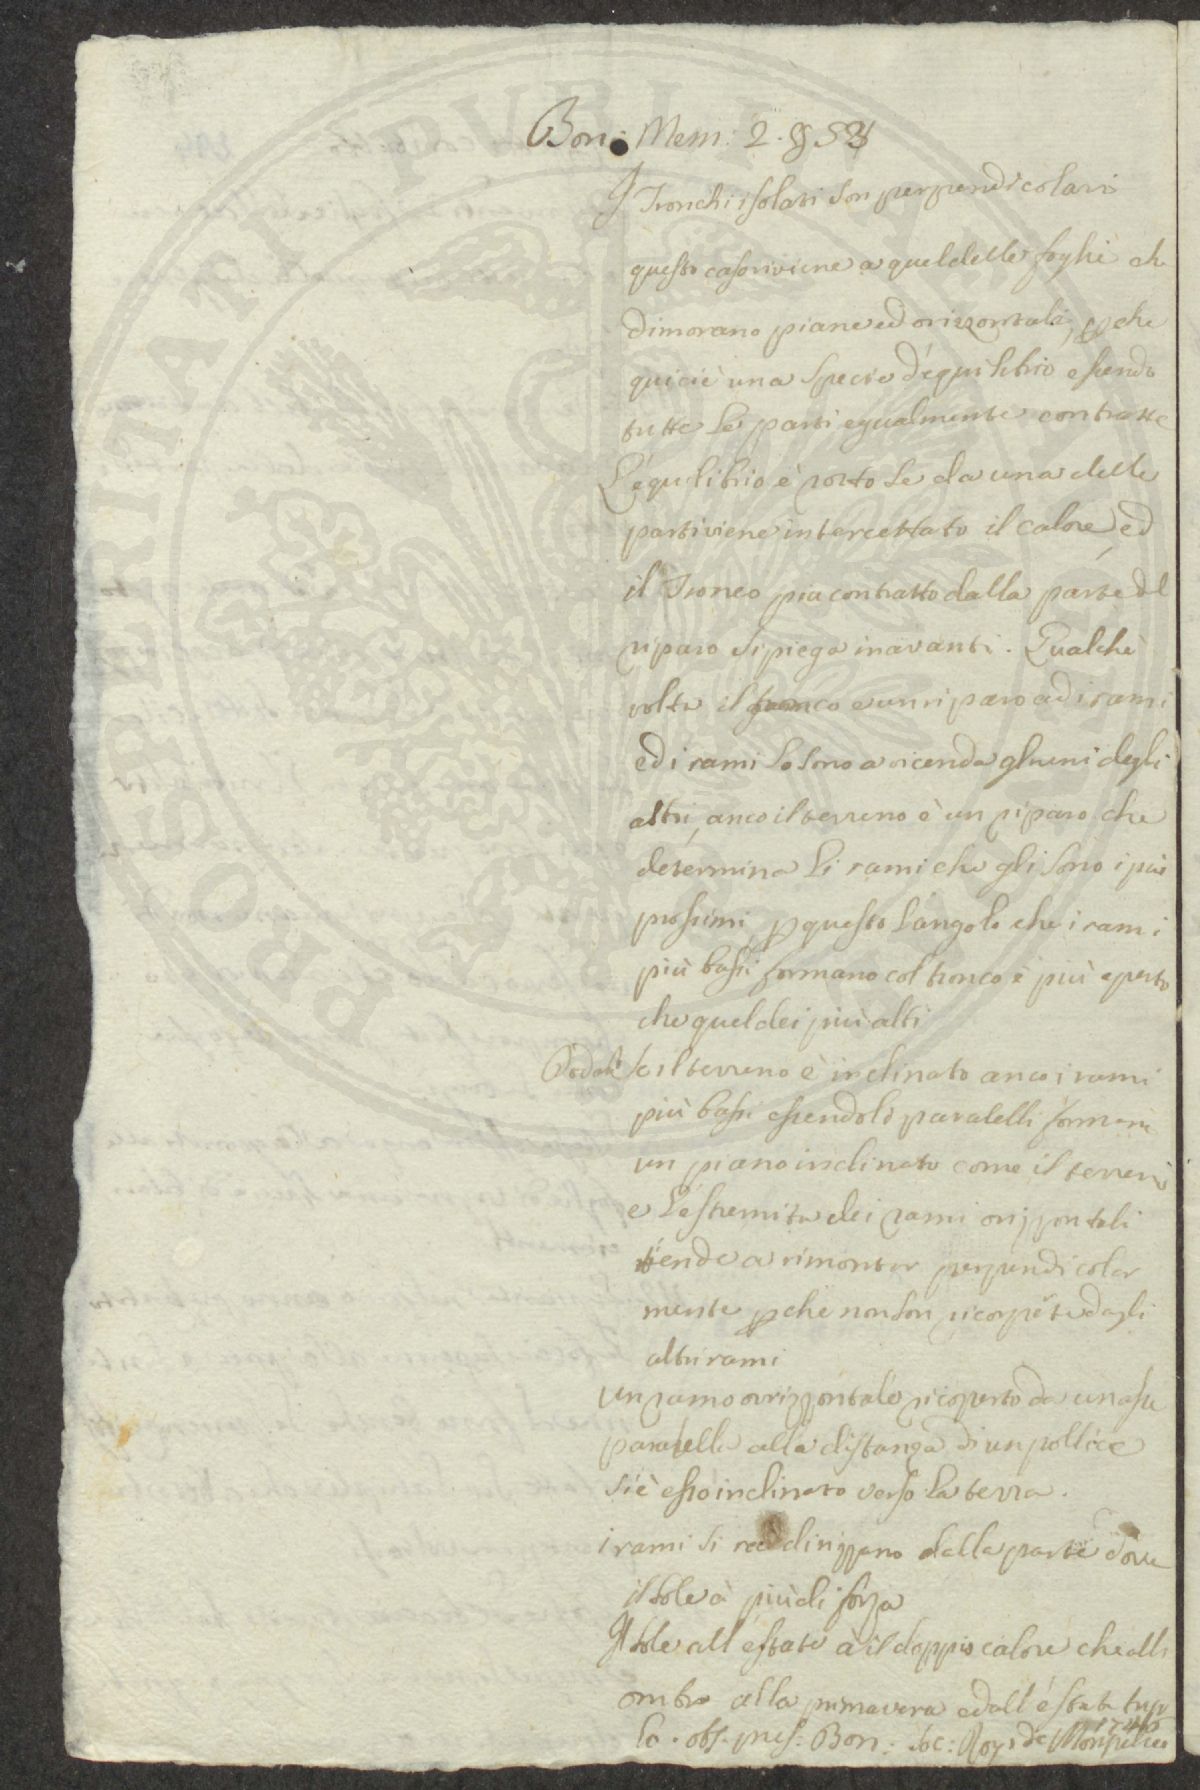 Bon: Mem: 2. § 53
I Tronchi isolati son perpendicolari
questo caso riviene a quel delle foglie ch
dimorano piane ed orizzontali, pche
qui ciè una specie d'equilibrio essendo
tutte le parti egualmente contratte
L'equilibrio è rotto se da una delle
parti viene intercettato il calore, ed
il Tronco piu contratto dalla parte del
riparo si piega in avanti. Qualche
volta il tronco e un riparo ad i rami
ed i rami lo sono a vicenda gl'uni degli
altri, anco il terreno è un riparo che
determina li rami che gli sono i più
prossimi, p questo l'angolo che i rami
più bassi formano col tronco è più aperto
che quel dei più alti
se il terreno è inclinato anco i rami
più bassi essendoli paralelli formano
un piano inclinato come il terreno
e l'estremita dei rami orizzontali
tende a rimontar perpendicolar
mente pche non son ricoperte dagli
altri rami
Un ramo orrizzontale ricoperto da un asse
paralella alla distanza di un pollice
si è esso inclinato verso la terra.
i rami si dirizzano dalla parte dove
il sole à più di forza
Il sole all'estate à il doppio calore che all
ombra alla primavera ed all'estate trip
lo. oss. pres: Bon: Soc: Roy: de Monpelier
1746